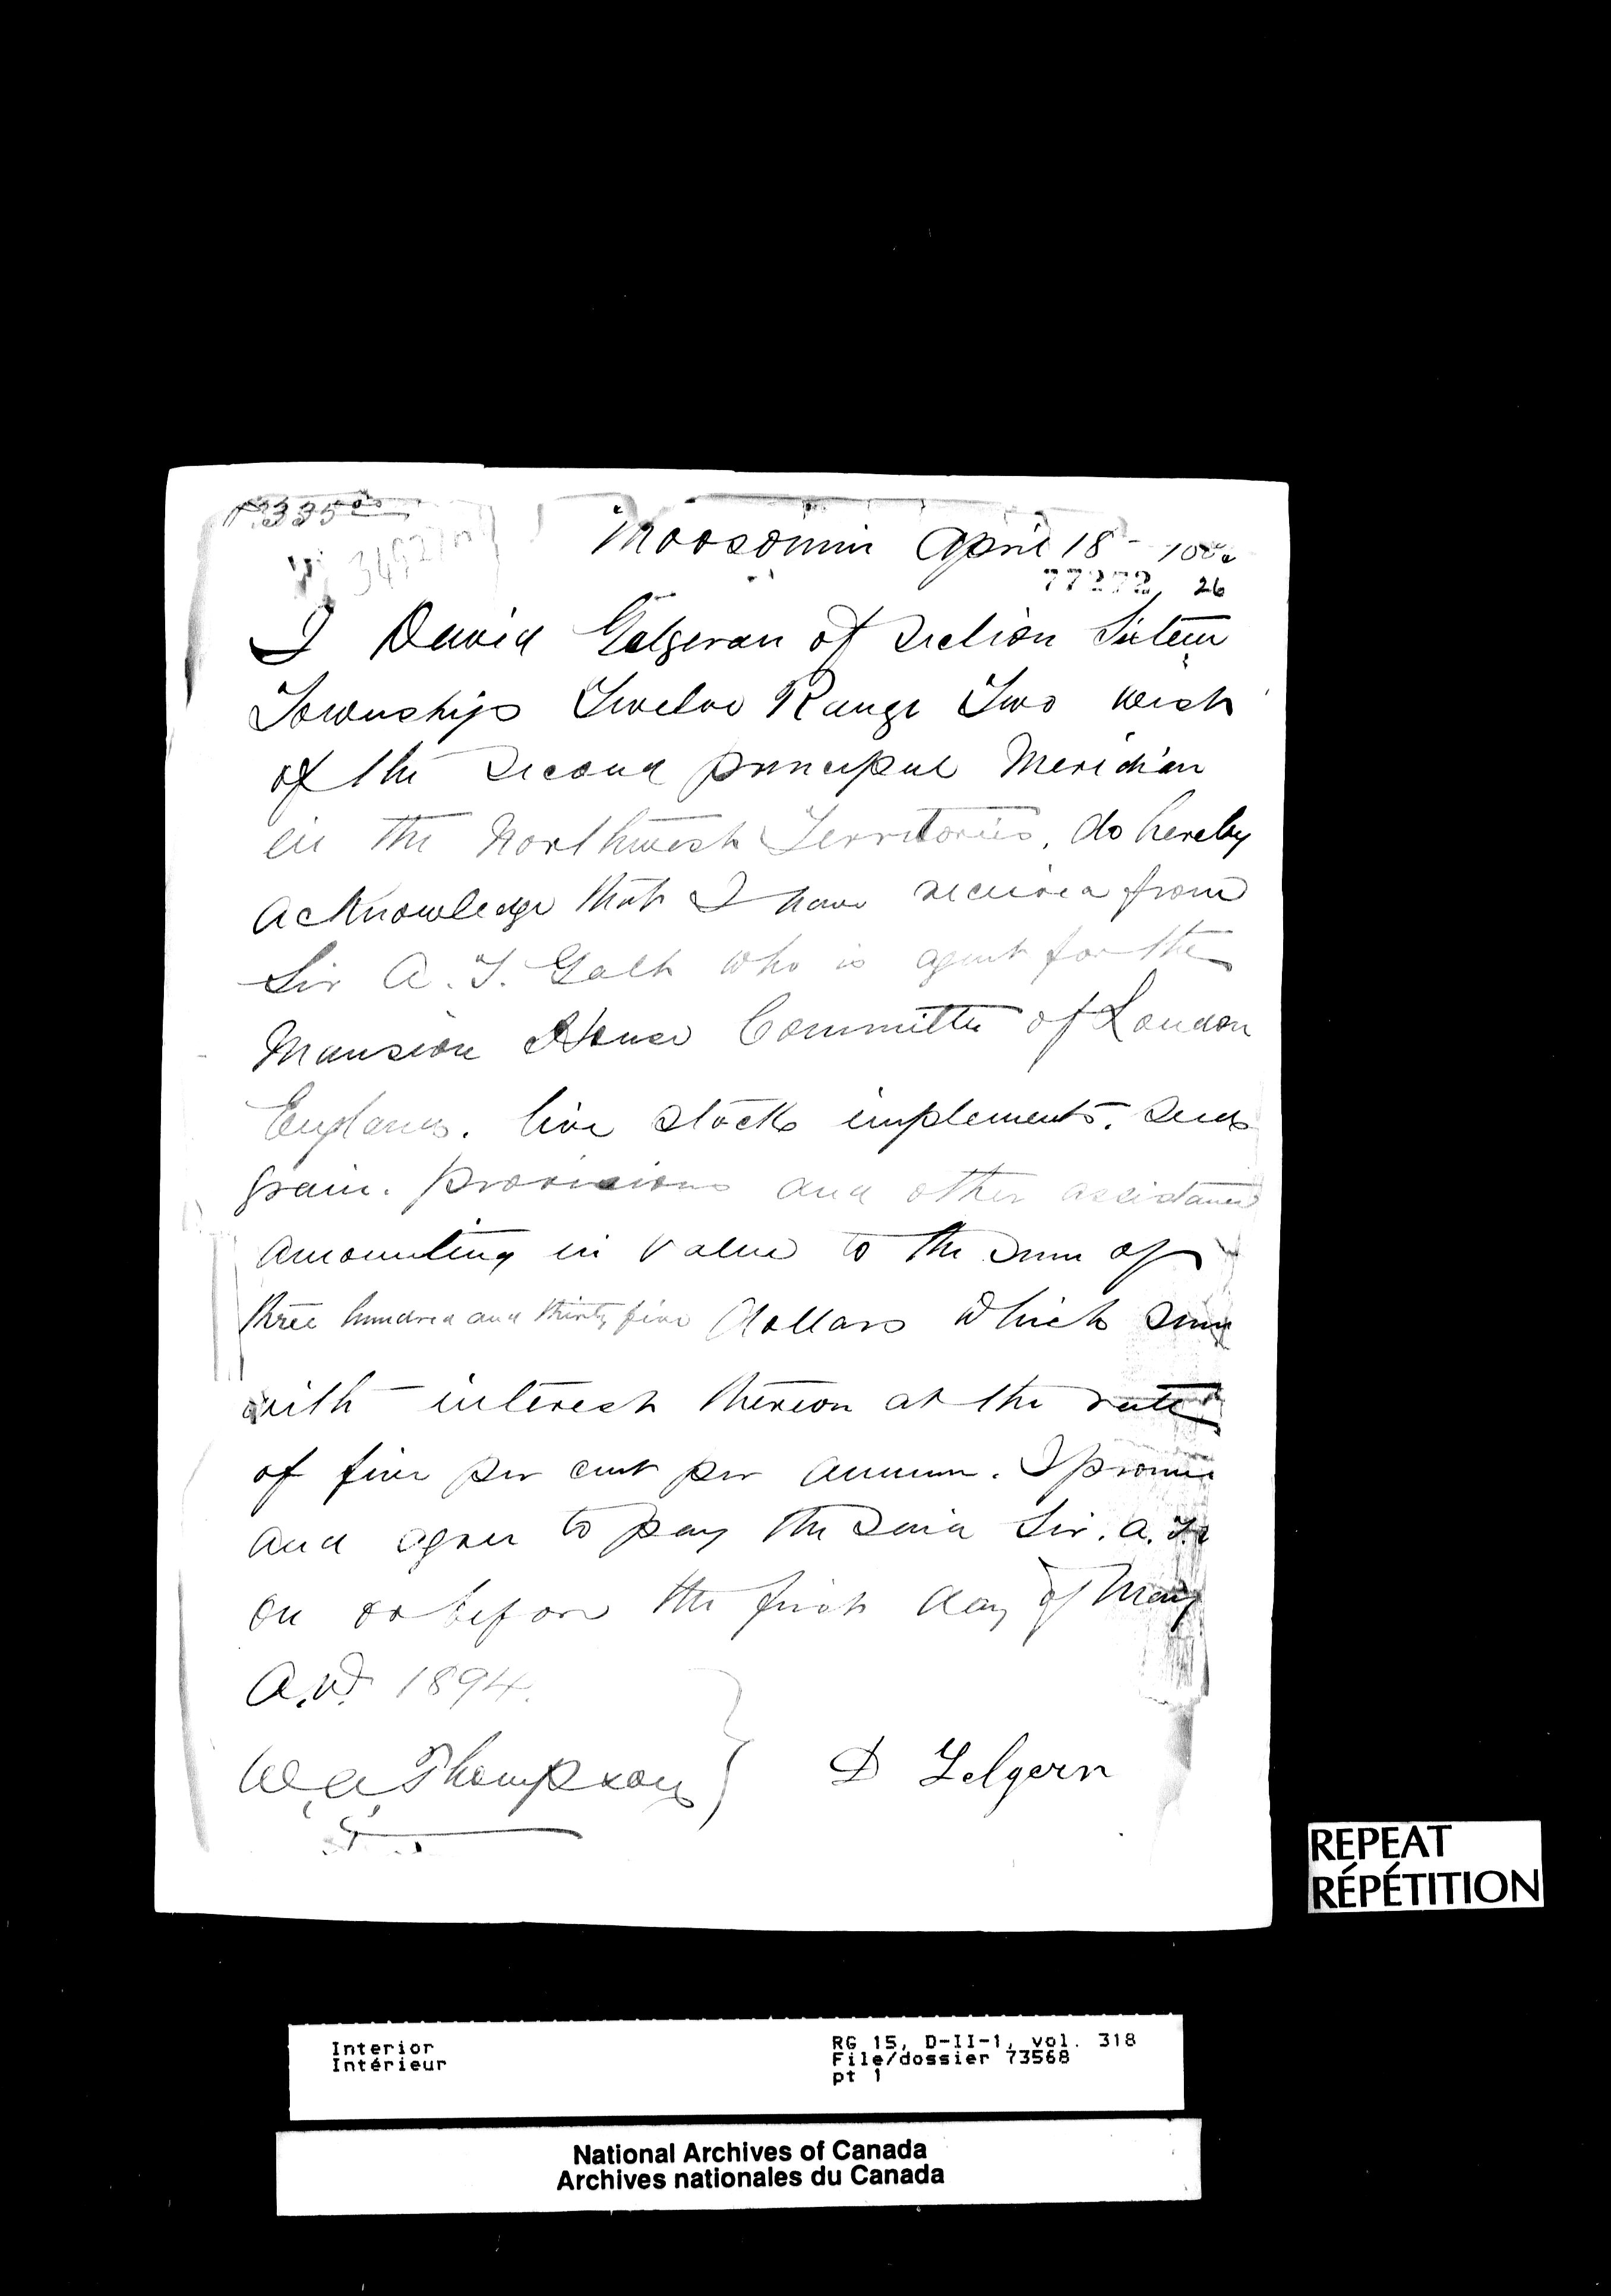 $335.00
Moosomin April 18
77272 26
I David Gelgeran of Section Sixteen
Township Twelve Range Two West
of the Second principal Meridian
in the Northwest Territories, do hereby
acknowledge that I have received from
Sir A. T. Galt who is agent for the
Mansion House Committee of London
England. live stock implements. Seed
grain. provisions and other assistance
amounting in value to the Sum of
three hundred and thirty five dollars which sum
with interest thereon at the rate
of five per cent per annum. I promise
and agree to pay the Said Sir. A. T.
on or before the first day of May
A.D. 1894.
W. A. Thompson } D Gelgern
REPEAT
RÉPÉTITION
Interior
Intérieur
RG 15, D-II-1, vol. 318
File/dossier 73568
pt 1
National Archives of Canada
Archives nationales du Canada